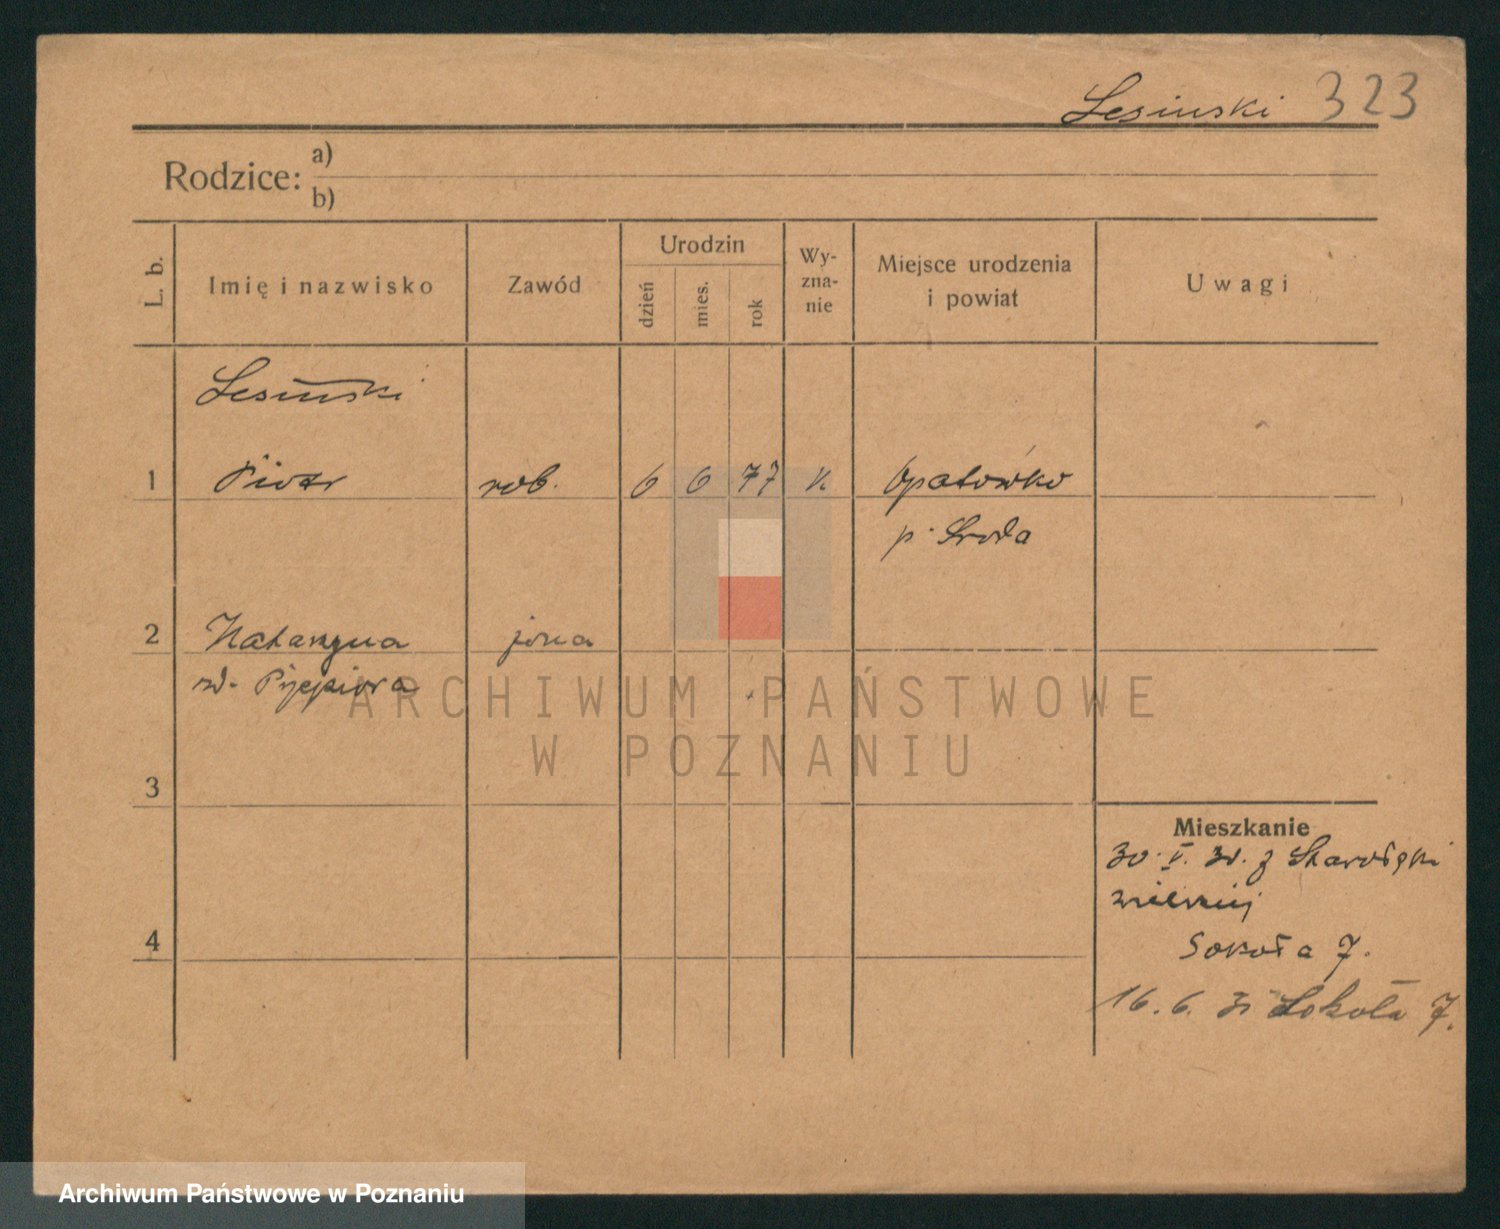 Lesinski 323
Rodzice: a)
b)
L. b.
Imię i nazwisko
Zawód
Urodzin
dzień
mies.
rok
Wy-
zna-
nie
Miejsce urodzenia
i powiat
Uwagi
Lesinski
1 Piotr rob. 6 6 77 k Opatówko
p. Sroda
2 Katarzyna żona
3
4
Mieszkanie
30. V. z Starołęki
wielkiej
Sokoła 7.
16. 6. 31 Sokoła 7.
ARCHIWUM PAŃSTWOWE
W POZNANIU
Archiwum Państwowe w Poznaniu